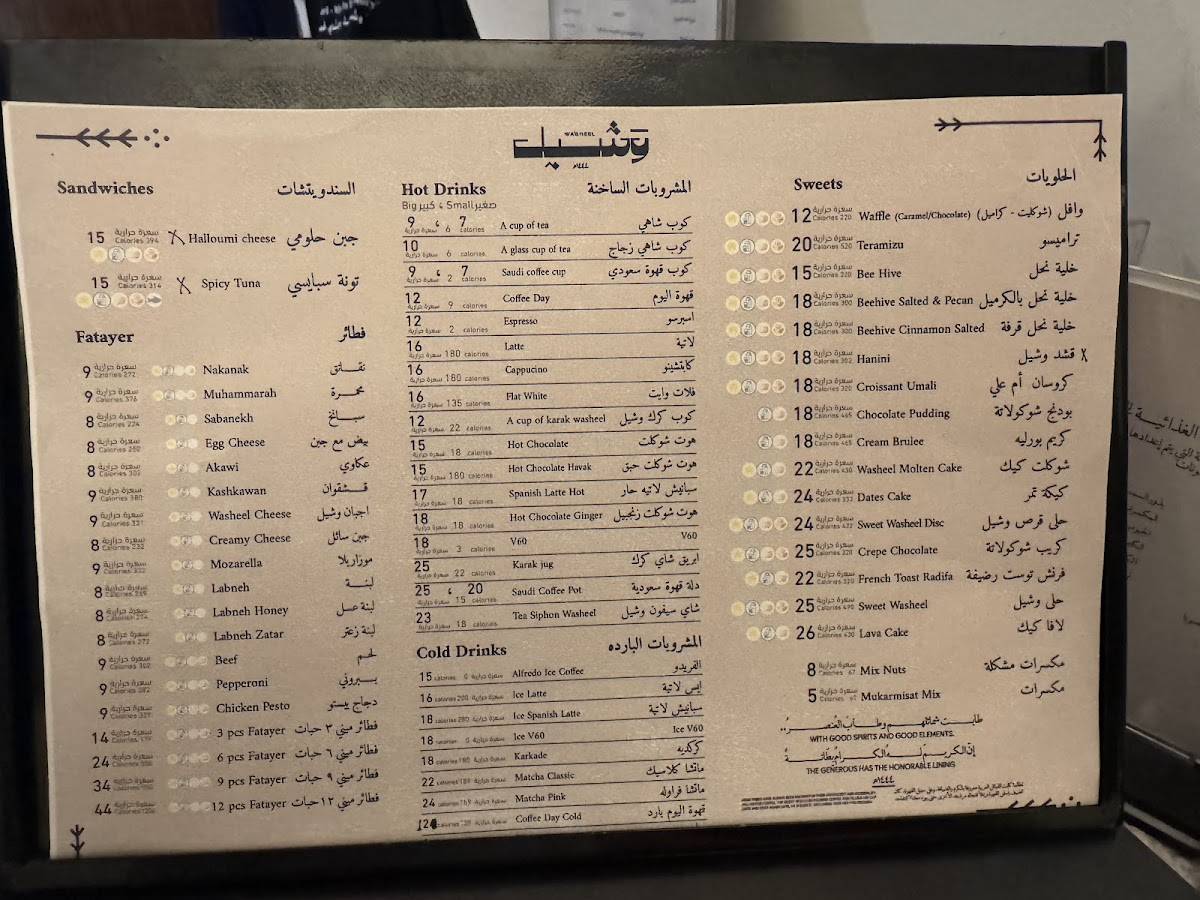 WASHEEL
وشيل
١٤٤٤
Sandwiches السندويتشات
15 سعرة حرارية Calories 394 X Halloumi cheese جبن حلومي
15 سعرة حرارية Calories 314 X Spicy Tuna تونة سبايسي
Fatayer فطائر
9 سعرة حرارية Calories 272 Nakanak نقـانق
9 سعرة حرارية Calories 376 Muhammarah محمـرة
8 سعرة حرارية Calories 224 Sabanekh سبـانخ
8 سعرة حرارية Calories 260 Egg Cheese بيض مع جبن
8 سعرة حرارية Calories 302 Akawi عكاوي
9 سعرة حرارية Calories 380 Kashkawan قـشقوان
9 سعرة حرارية Calories 321 Washeel Cheese اجبان وشيل
8 سعرة حرارية Calories 232 Creamy Cheese جبن سائل
9 سعرة حرارية Calories 332 Mozarella موزاريلا
8 سعرة حرارية Calories Labneh لبنـة
8 سعرة حرارية Calories 274 Labneh Honey لبنة عسل
8 سعرة حرارية Calories 272 Labneh Zatar لبنة زعتر
9 سعرة حرارية Calories 302 Beef لحـم
9 سعرة حرارية Calories 282 Pepperoni بـيبروني
9 سعرة حرارية Calories 327 Chicken Pesto دجاج بيستو
14 سعرة حرارية Calories 3 pcs Fatayer فطائر ميني ٣ حبات
24 سعرة حرارية Calories 6 pcs Fatayer فطائر ميني ٦ حبات
34 سعرة حرارية Calories 9 pcs Fatayer فطائر ميني ٩ حبات
44 سعرة حرارية Calories 12 pcs Fatayer فطائر ميني ١٢حبات
Hot Drinks المشروبات الساخنة
Big كبير ، Small صغير
9 ، 7 سعرة حرارية 6 calories A cup of tea كوب شاهي
10 سعرة حرارية 6 calories A glass cup of tea كوب شاهي زجاج
9 ، 7 سعرة حرارية 2 calories Saudi coffee cup كوب قهوة سعودي
12 سعرة حرارية 9 calories Coffee Day قهوة اليوم
12 سعرة حرارية 2 calories Espresso اسبرسو
16 سعرة حرارية 180 calories Latte لاتية
16 سعرة حرارية 180 calories Cappucino كابتشينو
16 سعرة حرارية 135 calories Flat White فلات وايت
12 سعرة حرارية 22 calories A cup of karak washeel كوب كرك وشيل
15 سعرة حرارية 18 calories Hot Chocolate هوت شوكلت
15 سعرة حرارية 180 calories Hot Chocolate Havak هوت شوكلت حبق
17 سعرة حرارية 18 calories Spanish Latte Hot سبانيش لاتيه حار
18 سعرة حرارية 18 calories Hot Chocolate Ginger هوت شوكلت زنجبيل
18 سعرة حرارية 3 calories V60 V60
25 سعرة حرارية 22 calories Karak jug ابريق شاي كرك
25 ، 20 سعرة حرارية 15 calories Saudi Coffee Pot دلة قهوة سعودية
23 سعرة حرارية 18 calories Tea Siphon Washeel شاي سيفون وشيل
Cold Drinks المشروبات البارده
15 calories 0 سعرة حرارية Alfredo Ice Coffee الفريدو
16 calories 200 سعرة حرارية Ice Latte ايس لاتية
18 calories 280 سعرة حرارية Ice Spanish Latte سبانيش لاتية
18 calories 0 سعرة حرارية Ice V60 Ice V60
18 calories 180 سعرة حرارية Karkade كركديه
22 calories 189 سعرة حرارية Matcha Classic ماتشا كلاسيك
24 calories 169 سعرة حرارية Matcha Pink ماتشا فراوله
12 calories سعرة حرارية Coffee Day Cold قهوة اليوم بارد
Sweets الحلويات
12 سعرة حرارية Calories 220 Waffle (Caramel/Chocolate) وافل (شوكليت - كراميل)
20 سعرة حرارية Calories 520 Teramizu تراميسو
15 سعرة حرارية Calories 220 Bee Hive خلية نحل
18 سعرة حرارية Calories 300 Beehive Salted & Pecan خلية نحل بالكرميل
18 سعرة حرارية Calories 300 Beehive Cinnamon Salted خلية نحل قرفة
18 سعرة حرارية Calories 352 Hanini قشد وشيل X
18 سعرة حرارية Calories 320 Croissant Umali كروسان أم علي
18 سعرة حرارية Calories 465 Chocolate Pudding بودنج شوكولاتة
18 سعرة حرارية Calories 465 Cream Brulee كريم بورليه
22 سعرة حرارية Calories 430 Washeel Molten Cake شوكلت كيك
24 سعرة حرارية Calories 332 Dates Cake كيكة تمر
24 سعرة حرارية Calories 422 Sweet Washeel Disc حلى قرص وشيل
25 سعرة حرارية Calories 228 Crepe Chocolate كريب شوكولاتة
22 سعرة حرارية Calories 320 French Toast Radifa فرنش توست رضيفة
25 سعرة حرارية Calories 490 Sweet Washeel حلى وشيل
26 سعرة حرارية Calories 430 Lava Cake لافا كيك
8 سعرة حرارية Calories 67 Mix Nuts مكسرات مشكلة
5 سعرة حرارية Calories Mukarmisat Mix مكسرات
طابت شمائلهم وطاب العنصر..
WITH GOOD SPIRITS AND GOOD ELEMENTS.
إن الكريم له الكرام بطانة
THE GENEROUS HAS THE HONORABLE LINING
١٤٤٤م